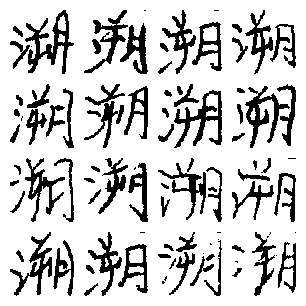 溯溯溯溯
溯溯溯溯
溯溯溯溯
溯溯溯溯